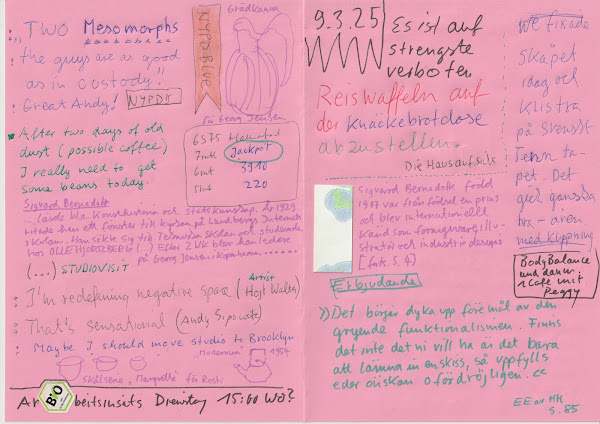 "TWO Mesomorphs
the guys are as good
as in custody."
Great Andy! NYPD
NYPD BLUE
Gradkanna
Få Georg Jensen
6375
7rätt Jackpot
6rätt 3910
5rätt 220
After two days of old
dust (possible coffee)
I really need to get
some beans today.
Sigvard Bernadotte
...läste bla Konsthistoria och Statskunskap. År 1929
ritade han ett fönster till kyrkan på Lundsbergs Internat
skolan. Han sökte sig till Tekniska Skolan och studerade
hos OLLE HJORTZBERG (...) Efter 2 VK blev han ledare
på Georg Jensen i Köpenhamn
(...) STUDIOVISIT
I'm redefining negative space (Artist Hojt Walter)
That's sensational (Andy Sipowitz)
Maybe I should move studio to Brooklyn
"modernum" 1954
Skålserie "Margrethe" för Rosti
BIO
Arbeitseinsats Dienstag 15:00 WO?
9.3.25
Es ist auf
strengste
verboten
Reiswaffeln auf
der Knäckebrotdose
abzustellen.
Die Hausaufsicht
Sigvard Bernadotte född
1907 var från födsel en prins
och blev internationellt
känd som formgivare, illu-
stratör och industridesigner
[forts. S. 4)
Erbjudande
Det börjar dyka upp föremål av den
gryende funktionalismen. Finns
det inte det ni vill ha är det bara
att lämna in en skiss, så uppfylls
eder önskan ofördröjligen.
EE av HH
S. 85
we fixade
skåpet
idag och
klistra
på svenskt
Tenn ta-
pet. Det
gick ganska
bra - även
med klyppning
BodyBalance
und dann
1 Cafe mit
Peggy